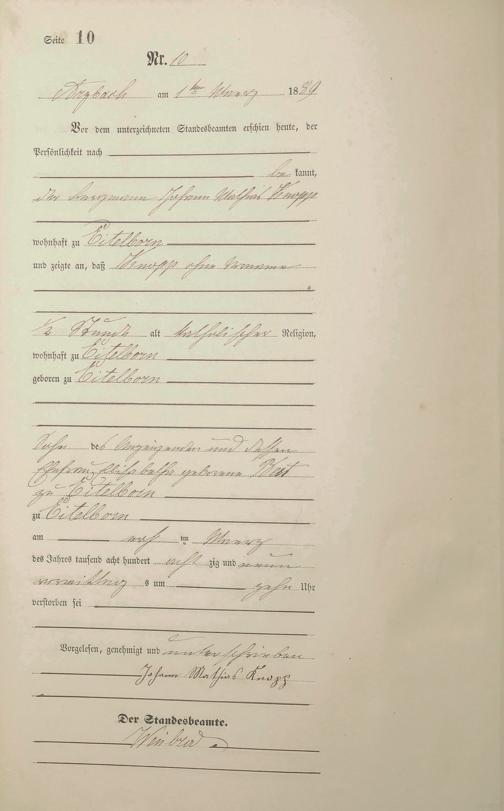 Seite 10
Nr. 10
Arzbach am 1ten Maerz 1889
Vor dem unterzeichneten Standesbeamten erschien heute, der
Persönlichkeit nach
be kannt,
der Bergmann Johann Mathias Knopp
wohnhaft zu Eitelborn
und zeigte an, daß Knopp ohne Vorname
1/2 Stunde alt katholischer Religion,
wohnhaft zu Eitelborn
geboren zu Eitelborn
Sohn des Anzeigenden und dessen
Ehefrau Elisabetha geborene
zu Eitelborn
zu Eitelborn
am ersten Maerz
des Jahres tausend acht hundert acht zig und neun
vormittags um zehn Uhr
verstorben sei
Vorgelesen, genehmigt und unterschrieben
Johann Mathias Knopp
Der Standesbeamte.